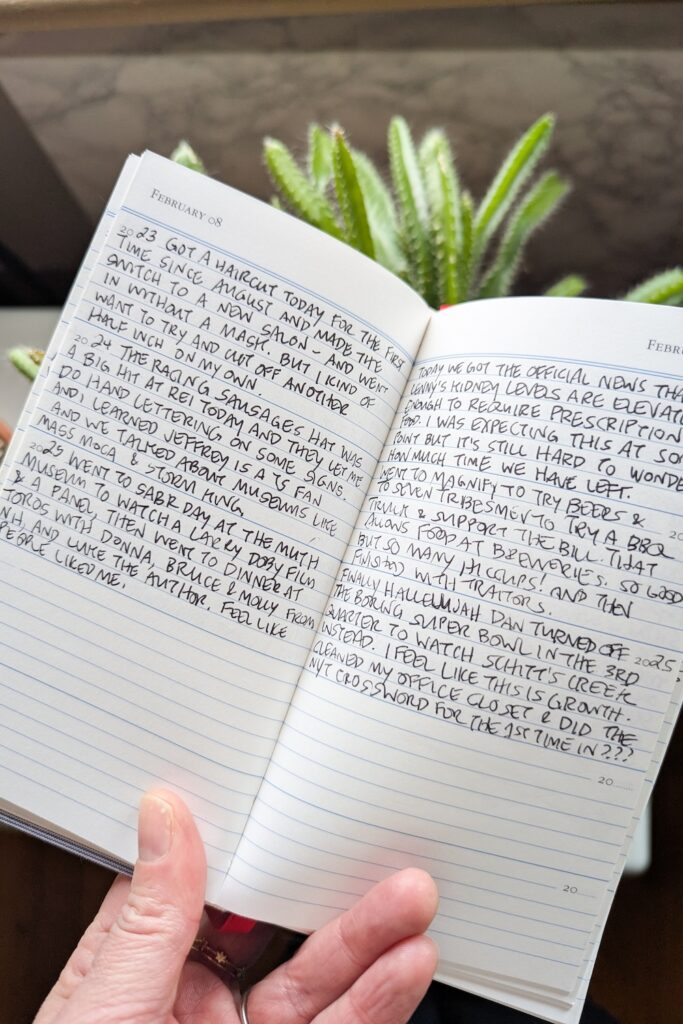 FEBRUARY 08
2023 GOT A HAIRCUT TODAY FOR THE FIRST
TIME SINCE AUGUST AND MADE THE
SWITCH TO A NEW SALON - AND WENT
IN WITHOUT A MASK. BUT I KIND OF
WANT TO TRY AND CUT OFF ANOTHER
HALF INCH ON MY OWN.
2024 THE RACING SAUSAGES HAT WAS
A BIG HIT AT REI TODAY AND THEY LET ME
DO HAND LETTERING ON SOME SIGNS.
AND I LEARNED JEFFREY IS A TS FAN
AND WE TALKED ABOUT MUSEUMS LIKE
MASS MOCA & STORM KING
2025 WENT TO SABR DAY AT THE MUTH
MUSEUM TO WATCH A LARRY DOBY FILM
& A PANEL THEN WENT TO DINNER AT
WITH DONNA, BRUCE & MOLLY FROM
N.H. AND LUKE THE AUTHOR. FEEL LIKE
PEOPLE LIKED ME.
FEBRU
TODAY WE GOT THE OFFICIAL NEWS THA
LENNY'S KIDNEY LEVELS ARE ELEVATE
ENOUGH TO REQUIRE PRESCRIPTION
FOOD. I WAS EXPECTING THIS AT SO
POINT BUT IT'S STILL HARD TO WONDE
HOW MUCH TIME WE HAVE LEFT.
WENT TO MAGNIFY TO TRY BEERS & 20
TO SEVEN TRIBESMEN TO TRY A BBQ
TRUCK & SUPPORT THE BILL THAT
ALLOWS FOOD AT BREWERIES. SO GOOD
BUT SO MANY HICCUPS! AND THEN
FINISHED WITH TRAITORS.
FINALLY HALLELUJAH DAN TURNED OFF 2025
THE BORING SUPER BOWL IN THE 3RD
QUARTER TO WATCH SCHITT'S CREEK
INSTEAD. I FEEL LIKE THIS IS GROWTH.
CLEANED MY OFFICE CLOSET & DID THE
NYT CROSSWORD FOR THE 1ST TIME IN ???
20
20